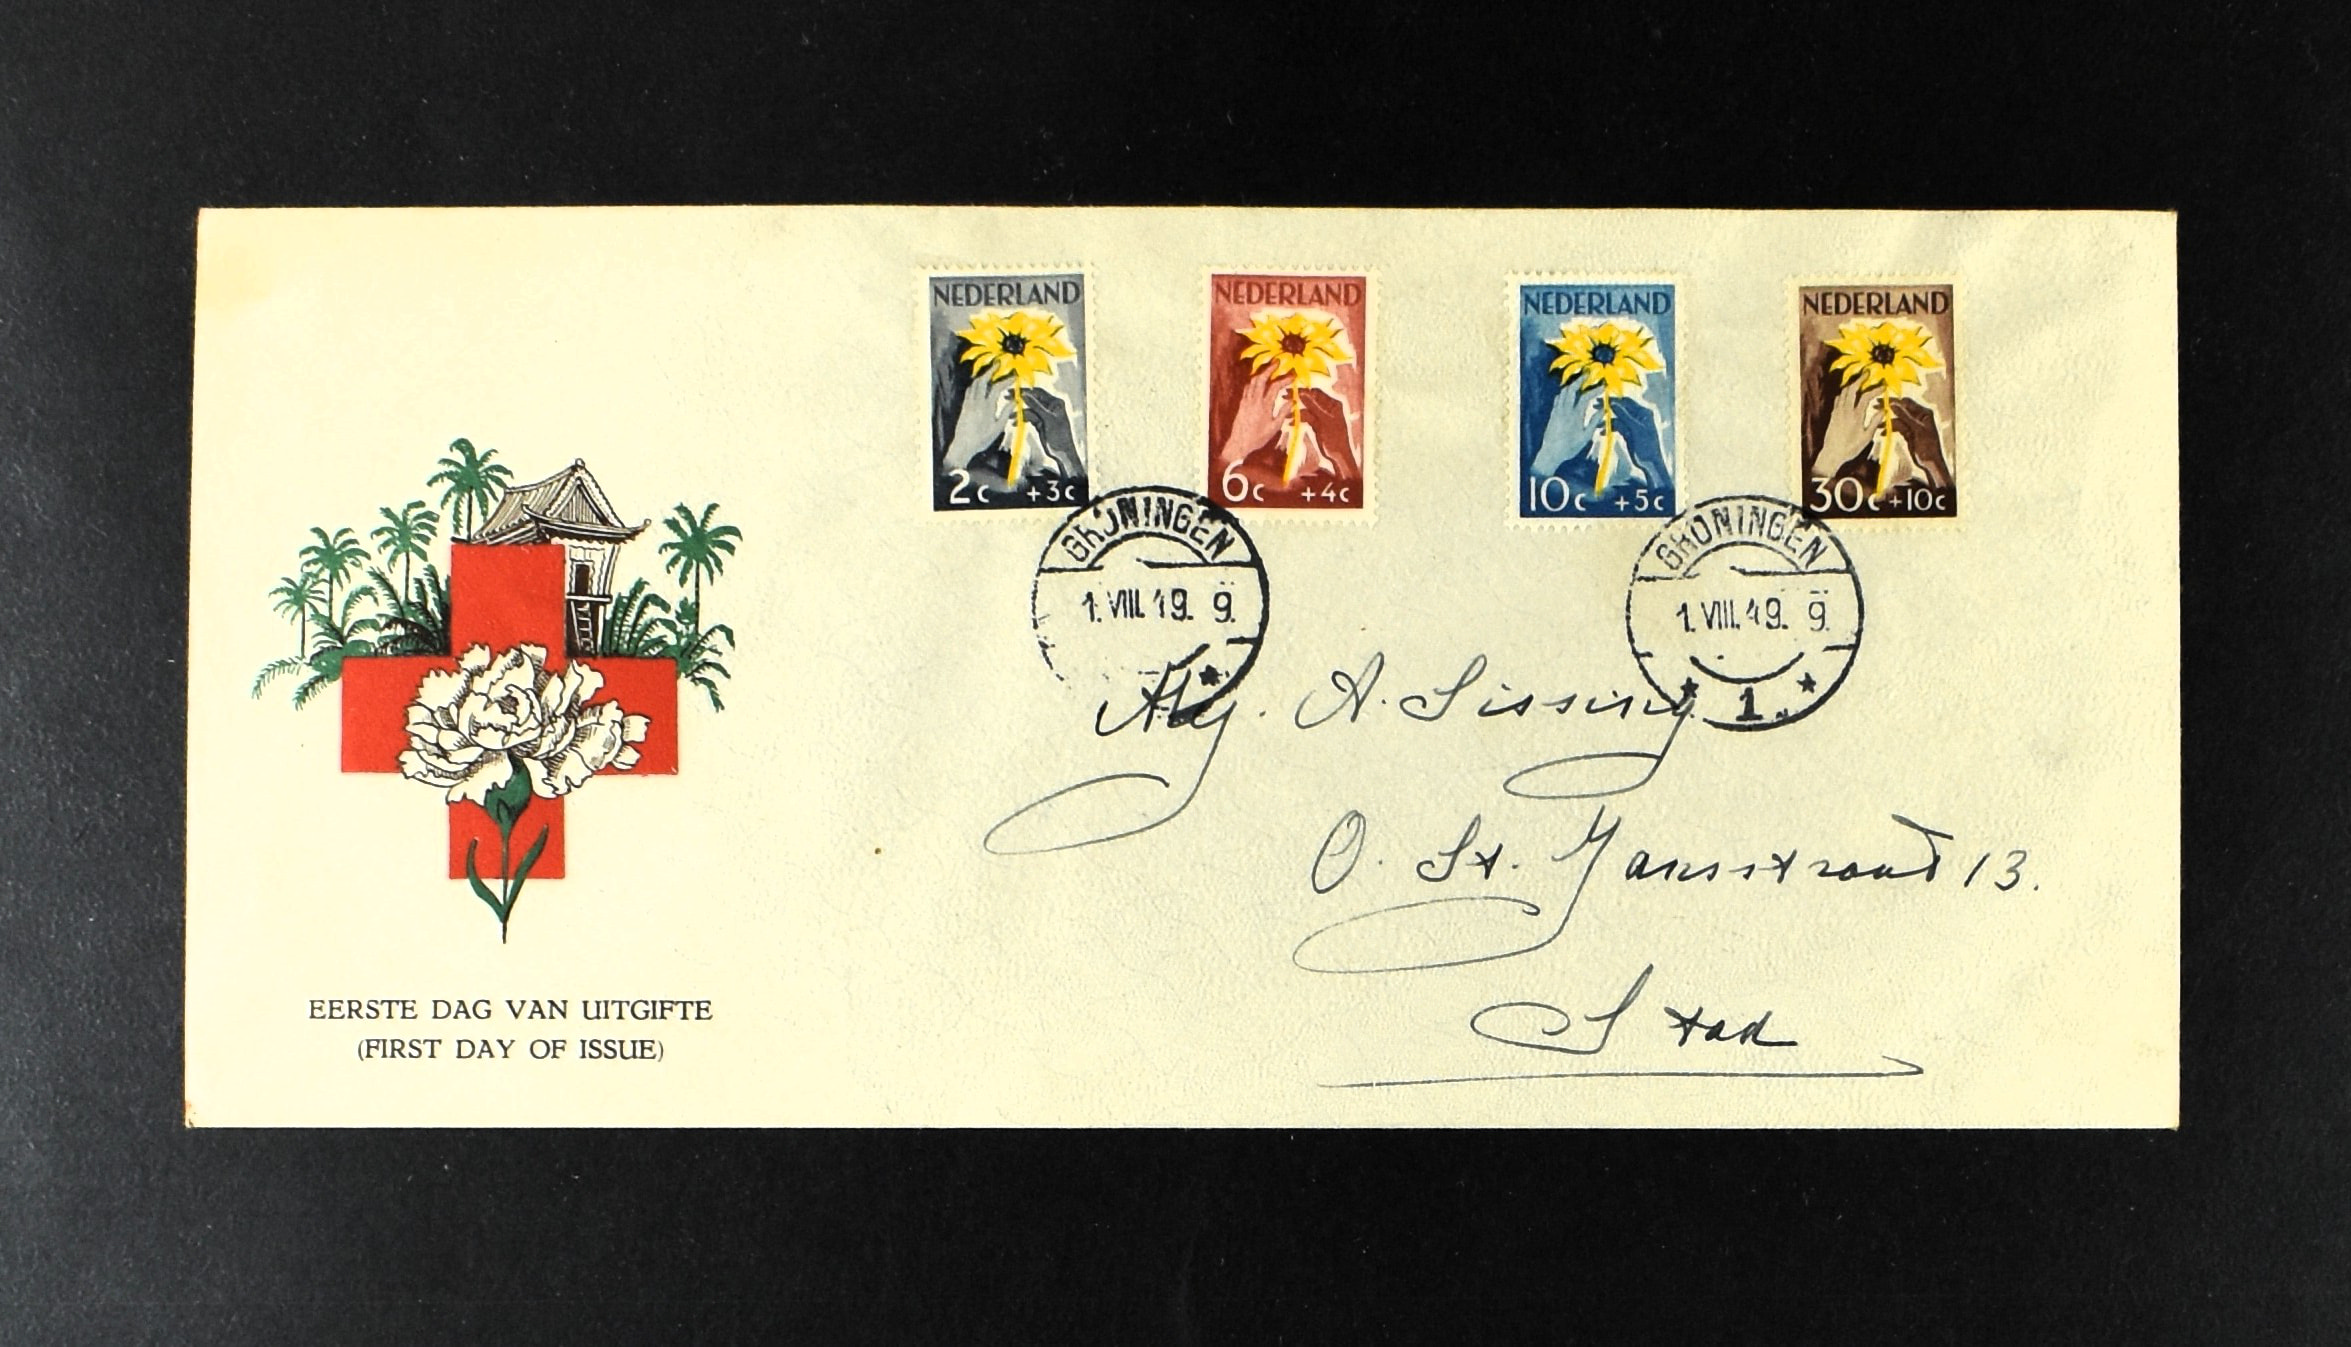 NEDERLAND
2c +3c
NEDERLAND
6c +4c
NEDERLAND
10c +5c
NEDERLAND
30c +10c
GRONINGEN
1.VIII.49. 9.
GRONINGEN
1.VIII.49. 9.
1
A. Sissing
O. St. Jansstraat 13.
Stad
EERSTE DAG VAN UITGIFTE
(FIRST DAY OF ISSUE)